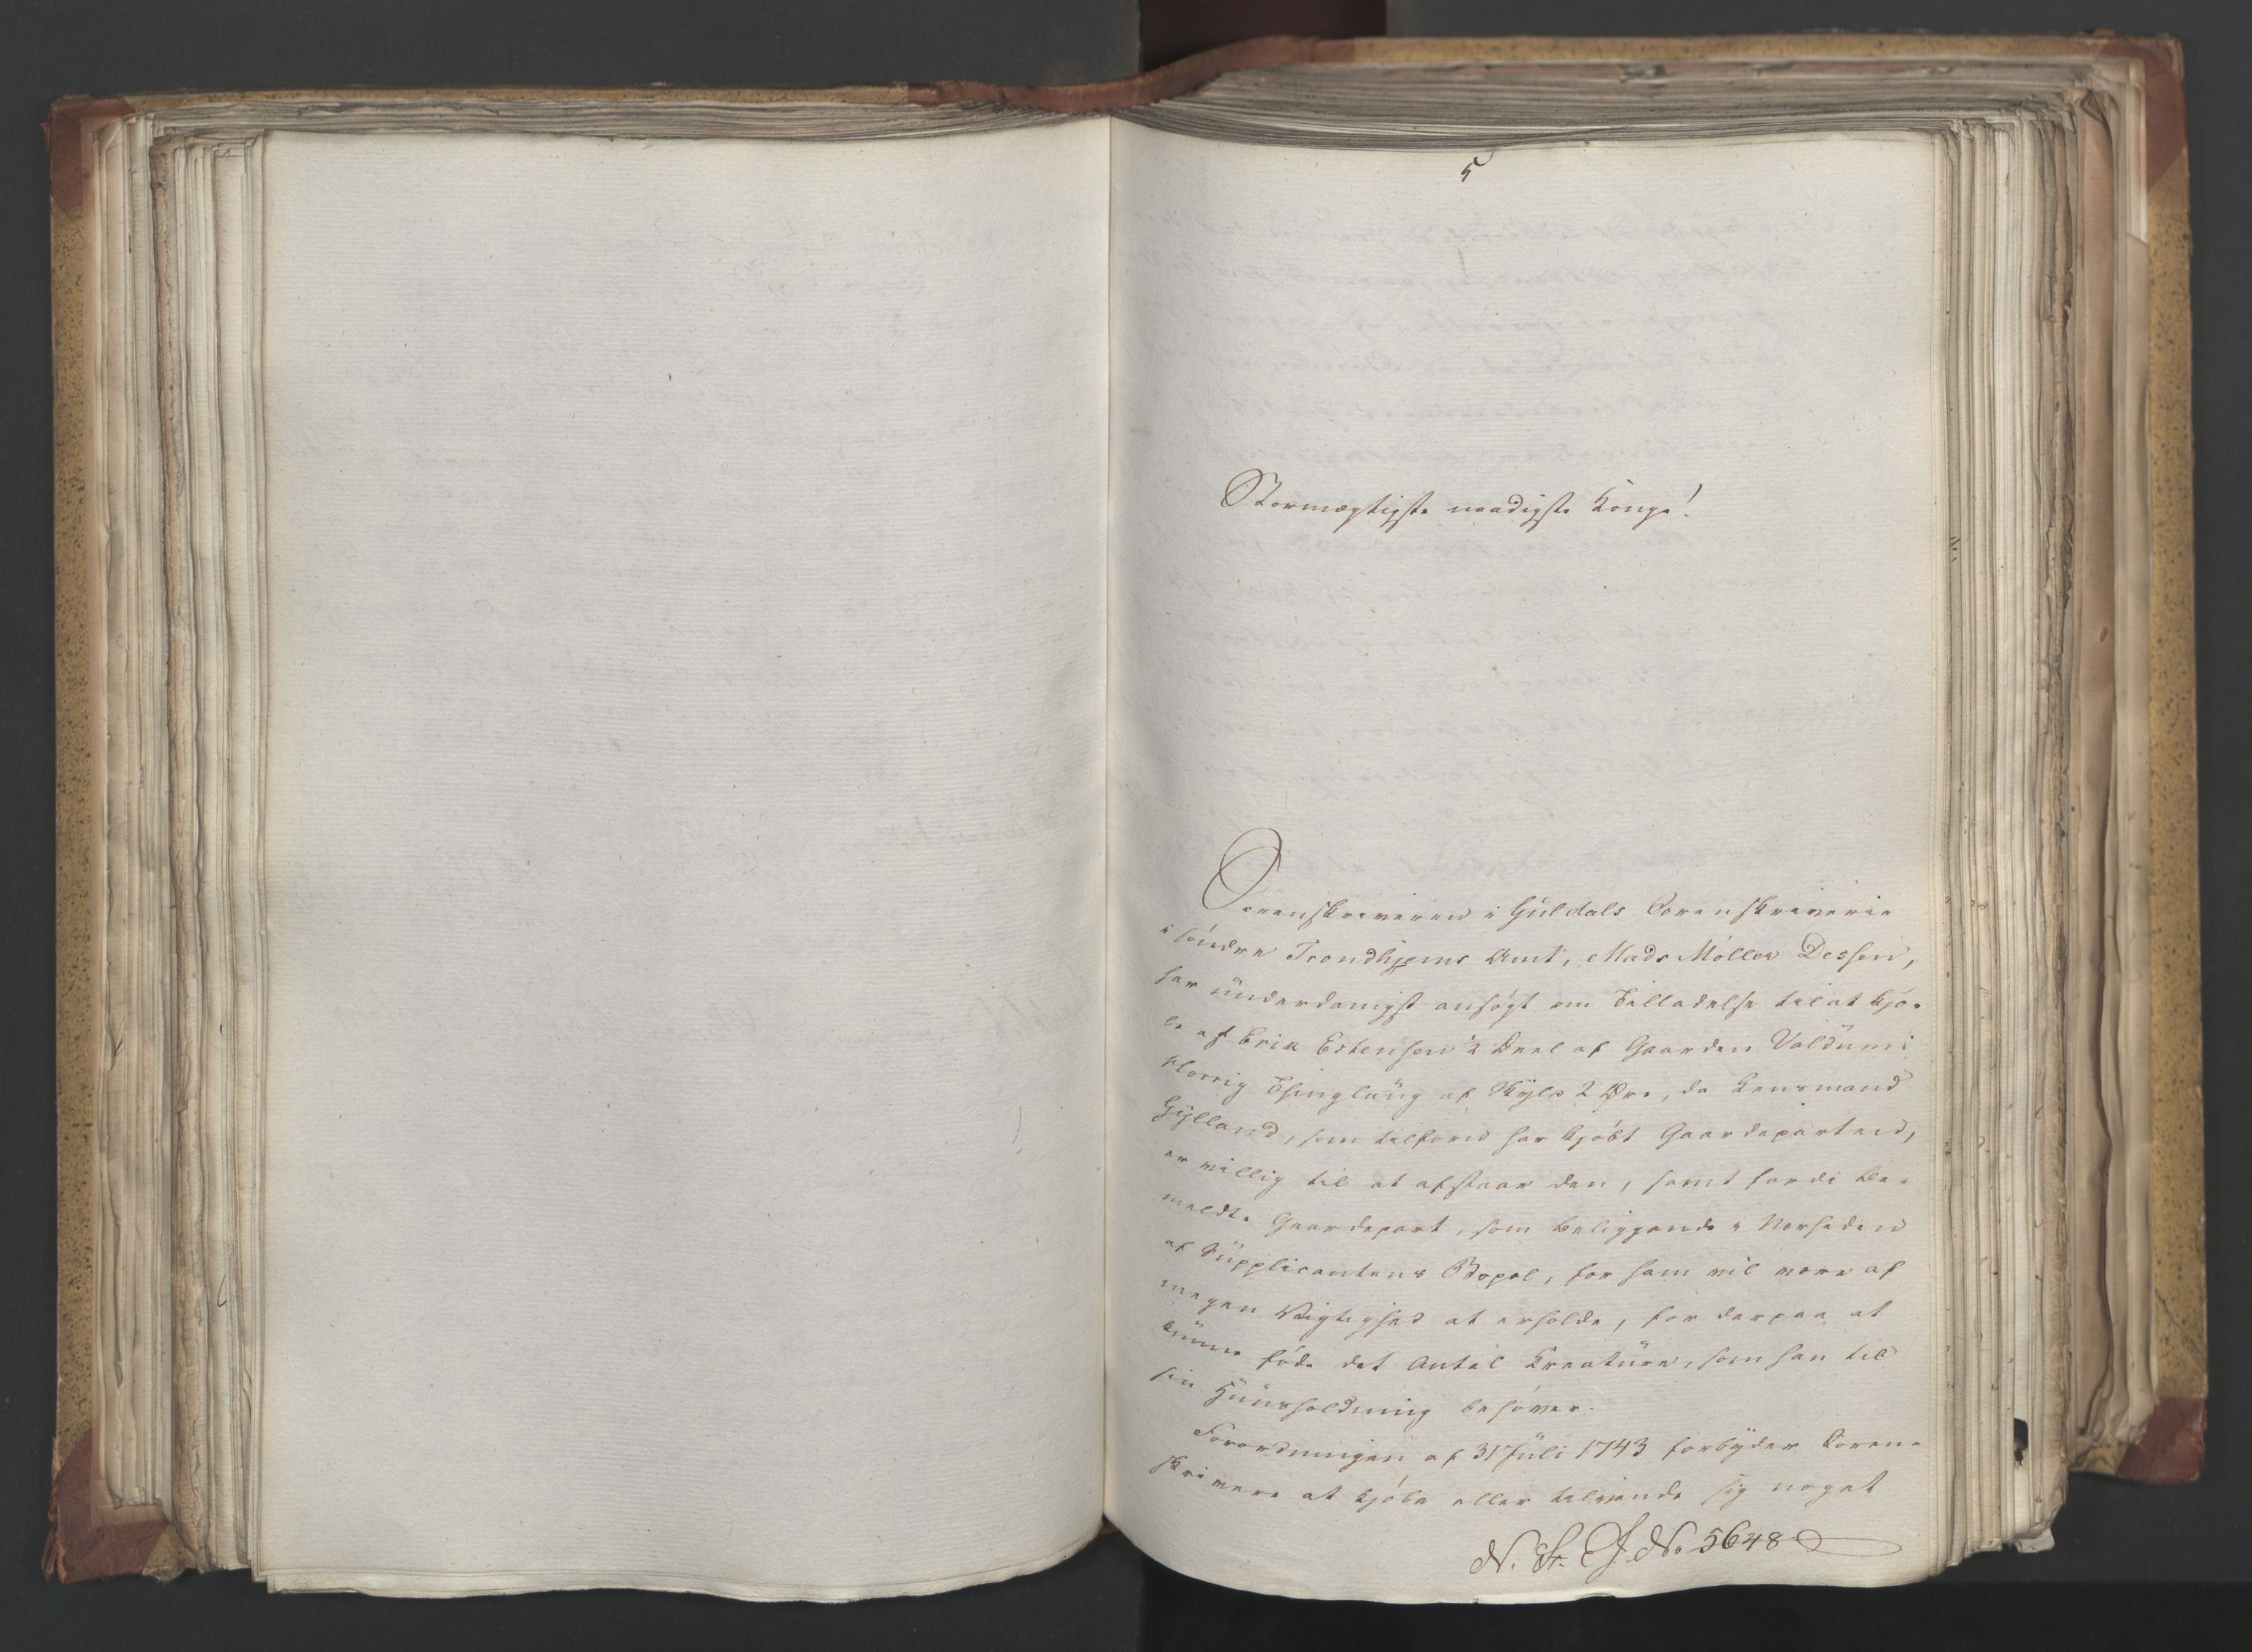 5
Stormægtigste naadigste Konge!
Sorenskriveren i Guldals Sorenskriverie
i søndre Trondhjems Amt, Mads Møller Dessen,
har underdanigst ansøgt om Tilladelse til at kjø-
be af Erik Estensen ½ Deel af Gaarden Valdum i
Horrig Thinglaug af Skyld 2 Øre, da Lensmand
Gylland, som tilforn har kjøbt Gaardeparten,
er villig til at afstaae den, samt fordi be-
meldte Gaardepart, som beliggende i Nærheden
af Supplicantens Bopæl, for ham vil være af
megen Vigtighed at erholde, for derpaa at
kunne føde det Antal Kreature, som han til
sin Huusholdning behøver.
Forordningen af 31 Juli 1743 forbyder Soren-
skrivere at kjøbe eller tilvende sig noget
N. St. J. No 5648